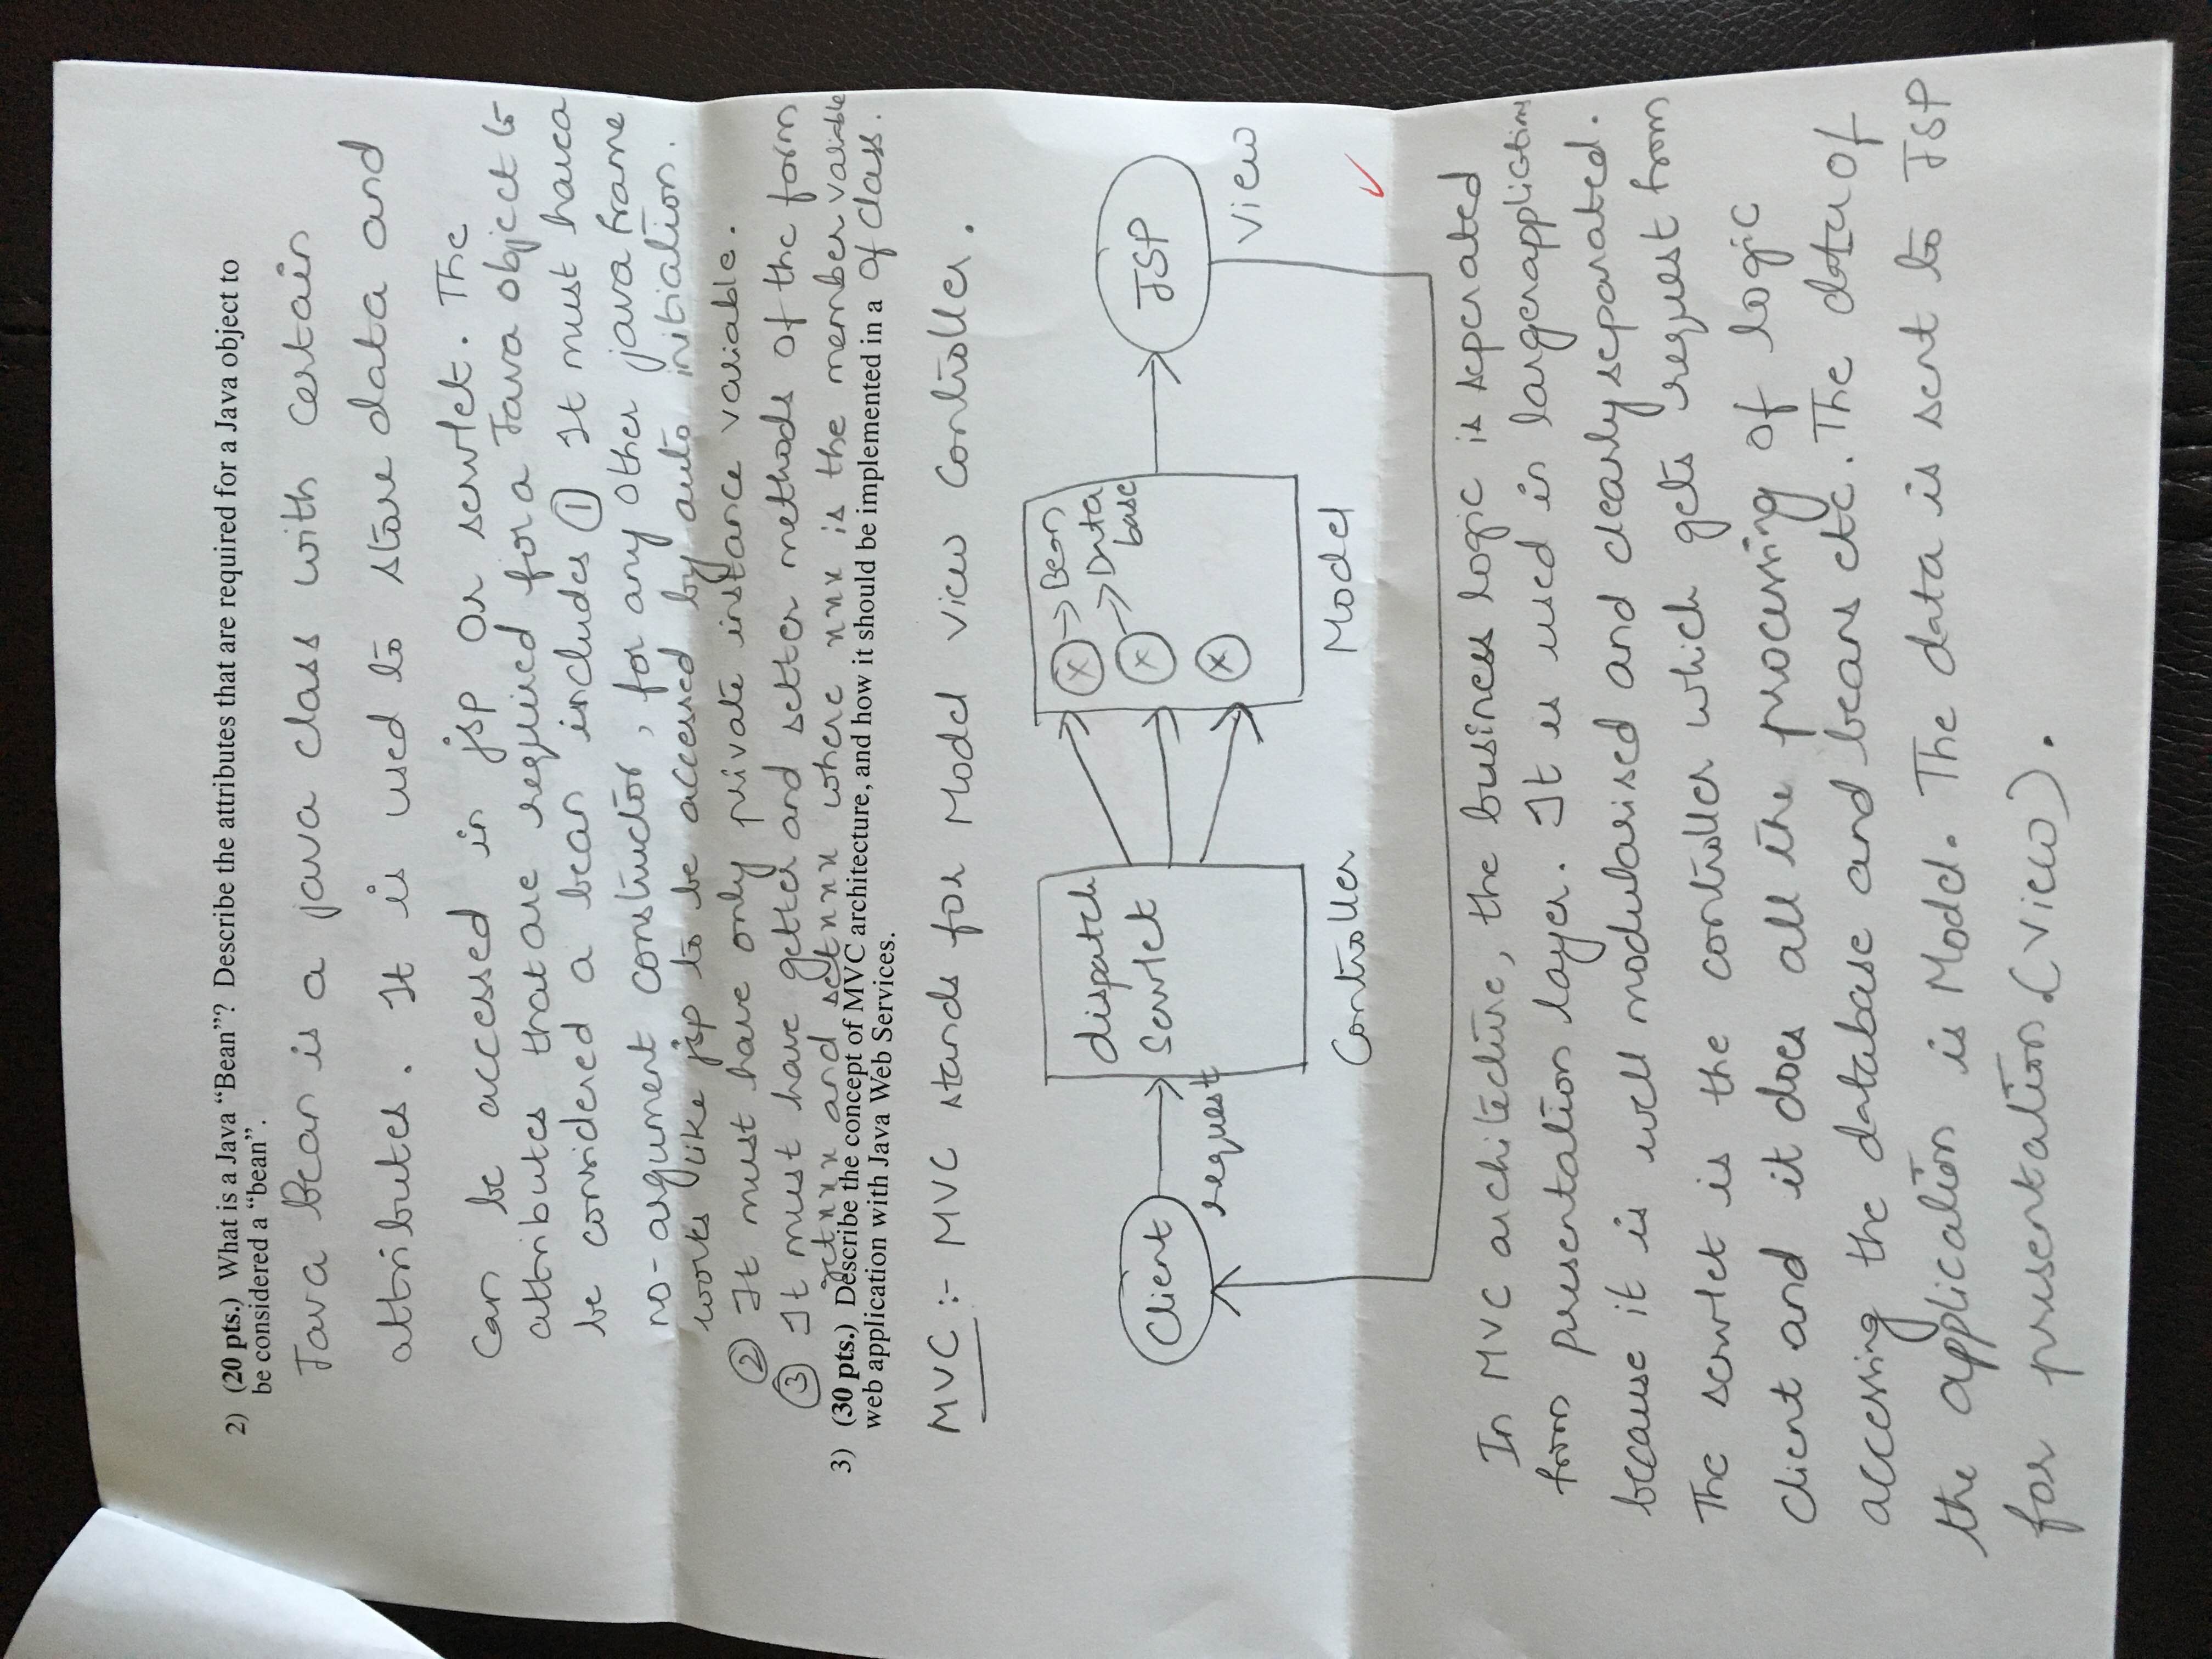 2) (20 pts.) What is a Java “Bean”? Describe the attributes that are required for a Java object to
be considered a “bean”.
Java Bean is a java class with certain
attributes. It is used to store data and
can be accessed in jsp or servlet. The
attributes that are required for a Java object to
be considered a bean includes ① It must have a
no-argument constructor, for any other java frame
works like jsp to be accessed by auto initiation.
② It must have only private instance variable.
③ It must have getter and setter methods of the form
getxxx and setxxx where xxx is the member variable
of class.
3) (30 pts.) Describe the concept of MVC architecture, and how it should be implemented in a
web application with Java Web Services.
MVC :- MVC stands for Model View Controller.
Client
request
dispatch
Servlet
Controller
x → Bean
x → Data
base
x
Model
JSP
View
In MVC architecture, the business logic is seperated
from presentation layer. It is used in larger applications
because it is well modularised and clearly separated.
The servlet is the controller which gets request from
client and it does all the processing of logic
accessing the database and beans etc. The data of
the application is Model. The data is sent to JSP
for presentation.(View).